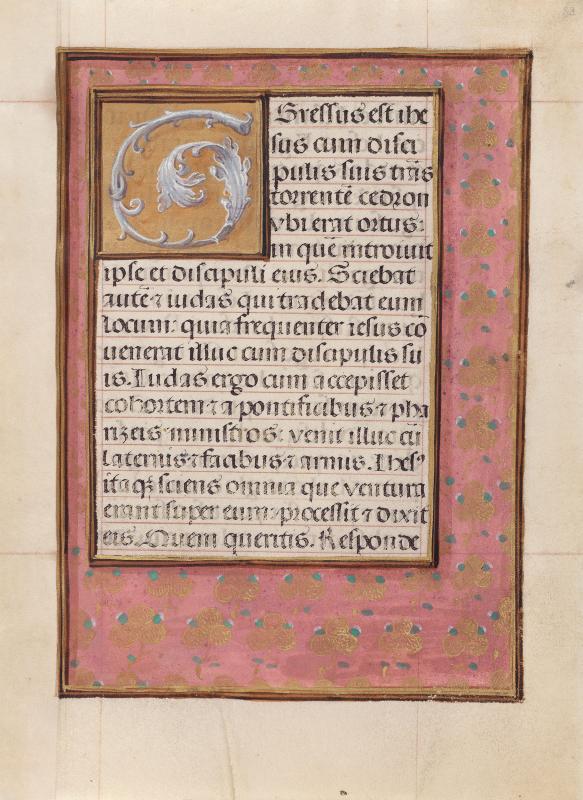 Gressus est ihe
sus cum disci
pulis suis trās
torrentē cedron
vbi erat ortus:
in quē introiuit
ipse et discipuli eius. Sciebat
autē ⁊ iudas qui tradebat eum
locum: quia frequenter iesus cō
uenerat illuc cum discipulis su
is. Iudas ergo cum accepisset
cohortem ⁊ a pontificibus ⁊ pha
rizeis ministros: venit illuc cū
laternis ⁊ facibus ⁊ armis. Ihesꝰ
itaqꝫ sciens omnia que ventura
erant super eum: processit ⁊ dixit
eis. Quem queritis. Responde